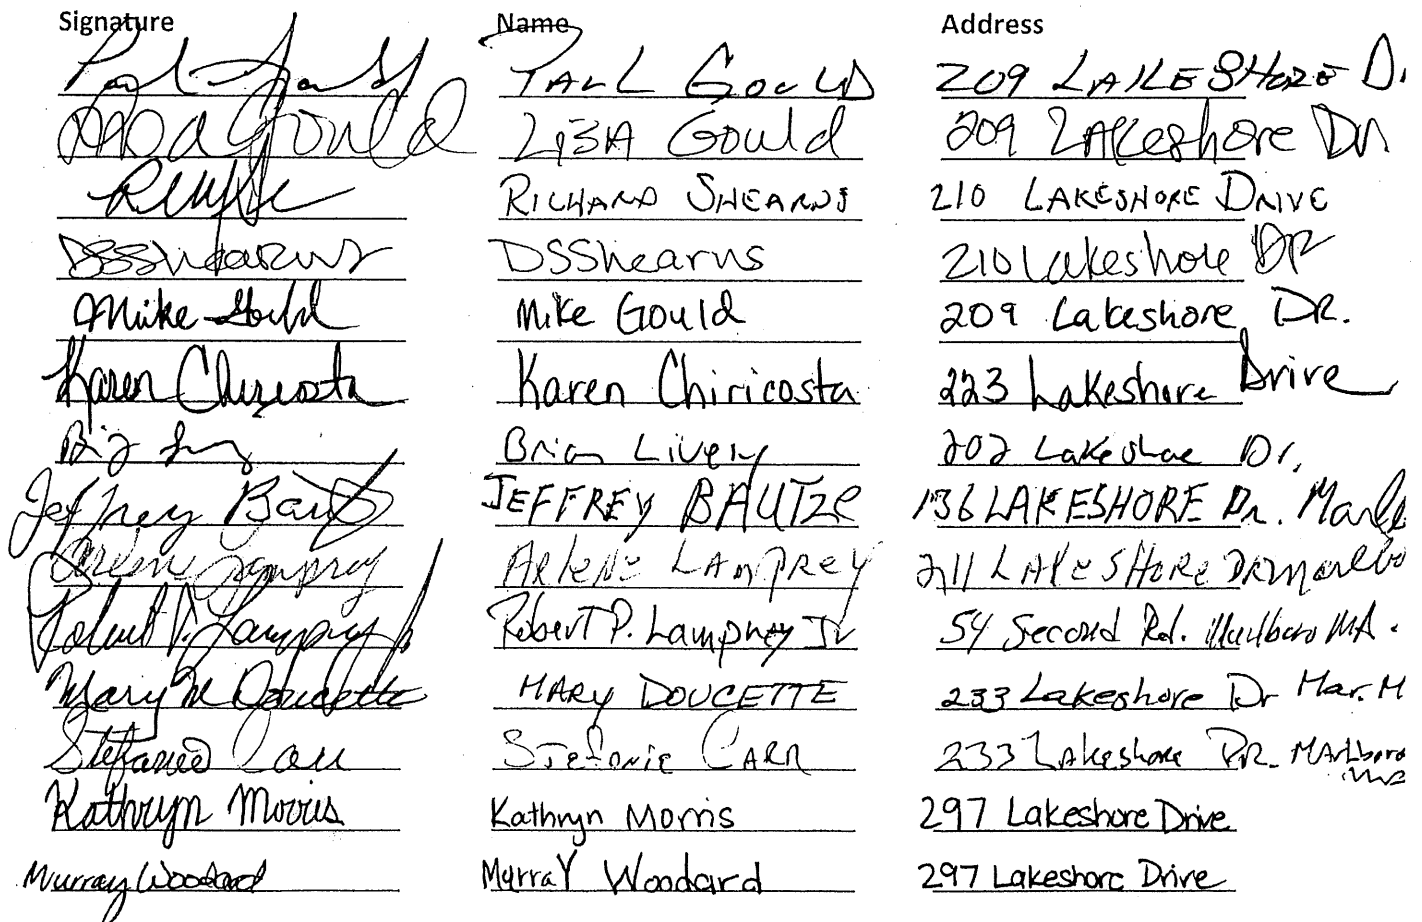 Signature Name Address
Paul Gould PAUL GOULD 209 LAKESHORE Dr
Lisa Gould LiSA Gould 209 LAKeshore Dr.
RICHARD SHEARNS 210 LAKESHORE DRIVE
DSShearns DSShearns 210 Lakeshore DR
Mike Gould Mike Gould 209 Lakeshore DR.
Karen Chiricosta Karen Chiricosta 223 Lakeshore Drive
Brian Lively 202 Lakeshore Dr.
Jeffrey Bautze JEFFREY BAUTZE 136 LAKESHORE Dr. Marlb
Arlene Lamprey Arlene LAMPREY 211 LAKESHORE DR Marlbo
Robert P. Lamprey Jr Robert P. Lamprey Jr 54 Second Rd. Marlboro MA.
Mary M Doucette MARY DOUCETTE 233 Lakeshore Dr Mar. M
Stefanie Carr Stefanie CARR 233 Lakeshore DR. MARlboro
Kathryn Morris Kathryn Morris 297 Lakeshore Drive
Murray Woodard Murray Woodard 297 Lakeshore Drive